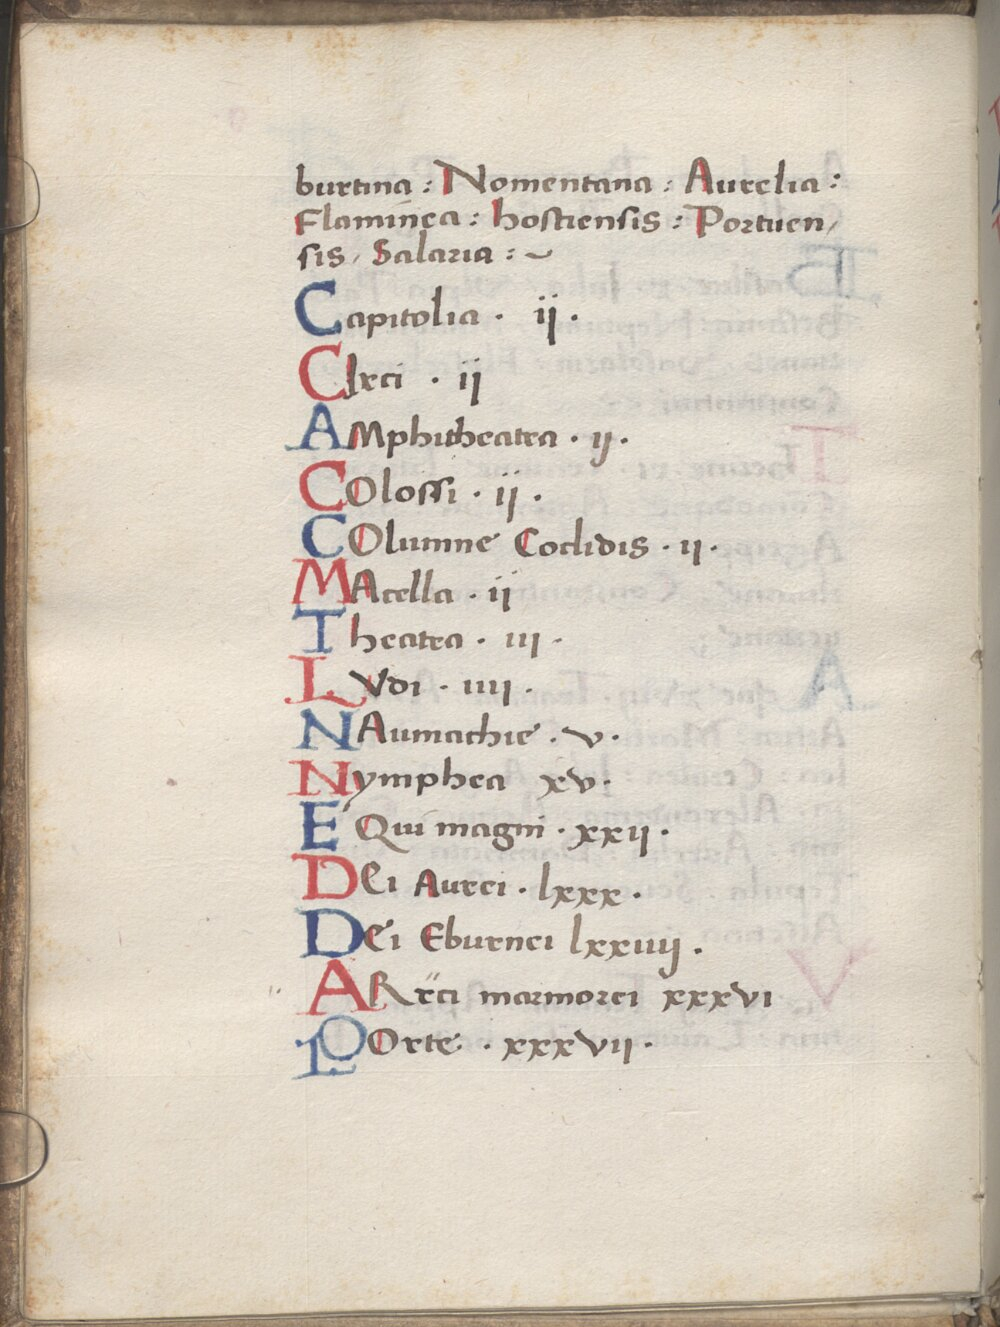 burtina : Nomentana : Aurelia :
Flaminea : hostiensis : Portuen/
sis / Salaria : ~
Capitolia · ij ·
CIrci · ij
AMphitheatra · ij ·
COlossi · ij ·
COlumne Coclidis · ij ·
MAcella · ij
Theatra · iij ·
LVdi · iiij ·
NAumachie · v ·
Nymphea xv ·
EQui magni · xxij ·
DEi Aurei · lxxx ·
DEi Eburnei lxxiiij ·
ARci marmorei xxxvi
POrte · xxxvij ·